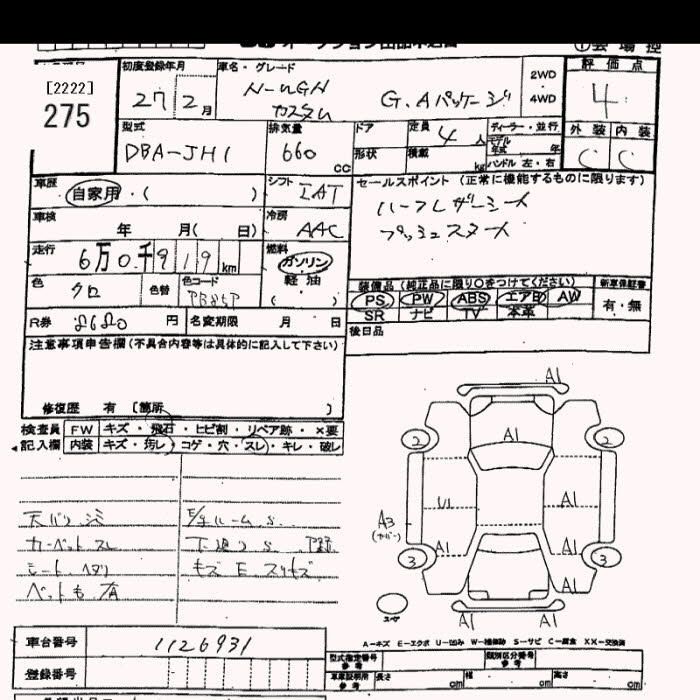 オークション出品申込書
①会場控
[2222]
275
初度登録年月
27 2月
車名・グレード
N-WGN
カスタム
G.Aパッケージ
2WD
4WD
評価点
4
外装 内装
C C
型式
DBA-JH1
排気量
660 cc
ドア
形状
定員 4人
積載 kg
ディーラー・並行
モデル年式 年
ハンドル 左・右
車歴
自家用・( )
シフト IAT
セールスポイント (正常に機能するものに限ります)
ハーフレザーシート
プッシュスタート
車検 年 月( 日)
冷房 AAC
走行 6万0千919km
燃料
ガソリン
軽油
( )
色 クロ
色替
色コード
装備品 (純正品に限り○をつけてください)
新車保証書
PS PW ABS エアB AW
有・無
SR ナビ TV 本革
R券 8680円
名変期限 月 日
後日品
注意事項申告欄(不具合内容等は具体的に記入して下さい)
修復歴 有 [箇所 ]
検査員 FW キズ・飛石・ヒビ割・リペア跡・×要
記入欄 内装 キズ・汚レ・コゲ・穴・スレ・キレ・破レ
天バリ シミ
カーペット スレ
シート ヘタリ
ペット毛 有
E/gルーム S.
下廻り S.
キズ E スリキズ
A1
2 A1 2
U1 A1
A3
(カバー)
A1 A1
3 3
A1
スペア
A1 A1
A-キズ E-エクボ U-凹み W-補修跡 S-サビ C-腐食 XX-交換済
車台番号 1126931
登録番号
型式指定番号
参考
類別区分番号
参考
車庫証明用
参考
長さ cm 幅 cm 高さ cm